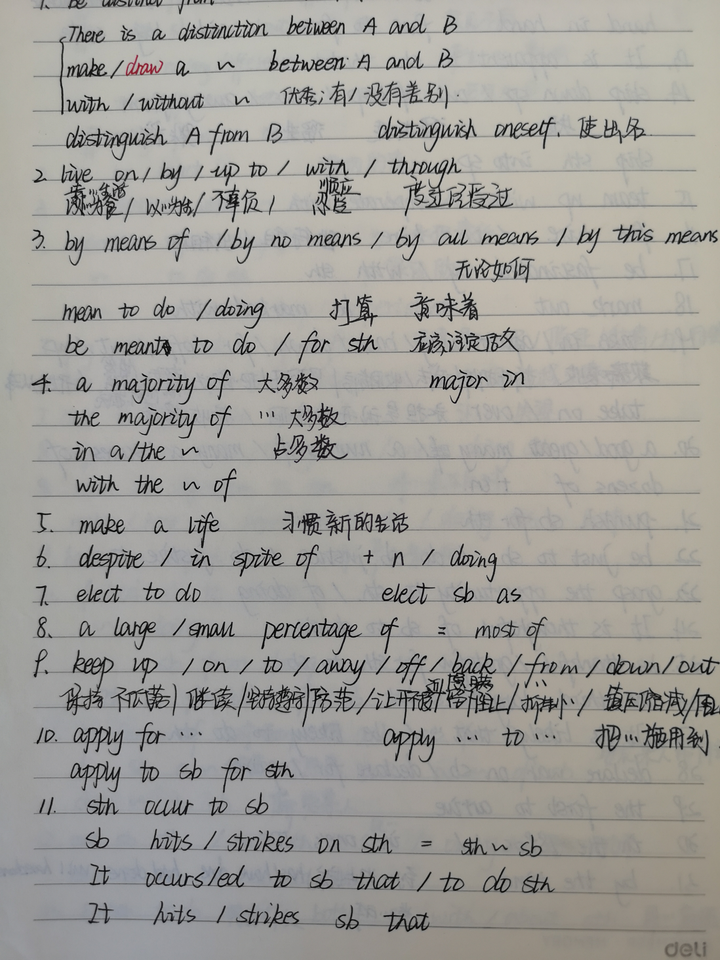 1. be distinct from
There is a distinction between A and B
make/draw a ~ between A and B
with / without ~ 优秀; 有/没有差别.
distinguish A from B distinguish oneself. 使出名
2. live on / by / up to / with / through
以…为生/ 不辜负/ 顺应 度过 经受过
3. by means of / by no means / by all means / by this means
无论如何
mean to do / doing 打算 意味着
be meant to do / for sth 应该 注定做
4. a majority of 大多数 major in
the majority of … 大多数
in a/the ~ 占多数
with the ~ of
5. make a life 习惯新的生活
6. despite / in spite of + n / doing
7. elect to do elect sb as
8. a large / small percentage of = most of
9. keep up / on / to / away / off / back / from / down / out
保持 不低落/ 继续/坚持遵守/防范/让开 隐瞒 阻止/抑制
10. apply for … apply … to … 把…施用到
apply to sb for sth
11. sth occur to sb
sb hits / strikes on sth = sth ~ sb
It occurs/ed to sb that / to do sth
It hits / strikes sb that
deli